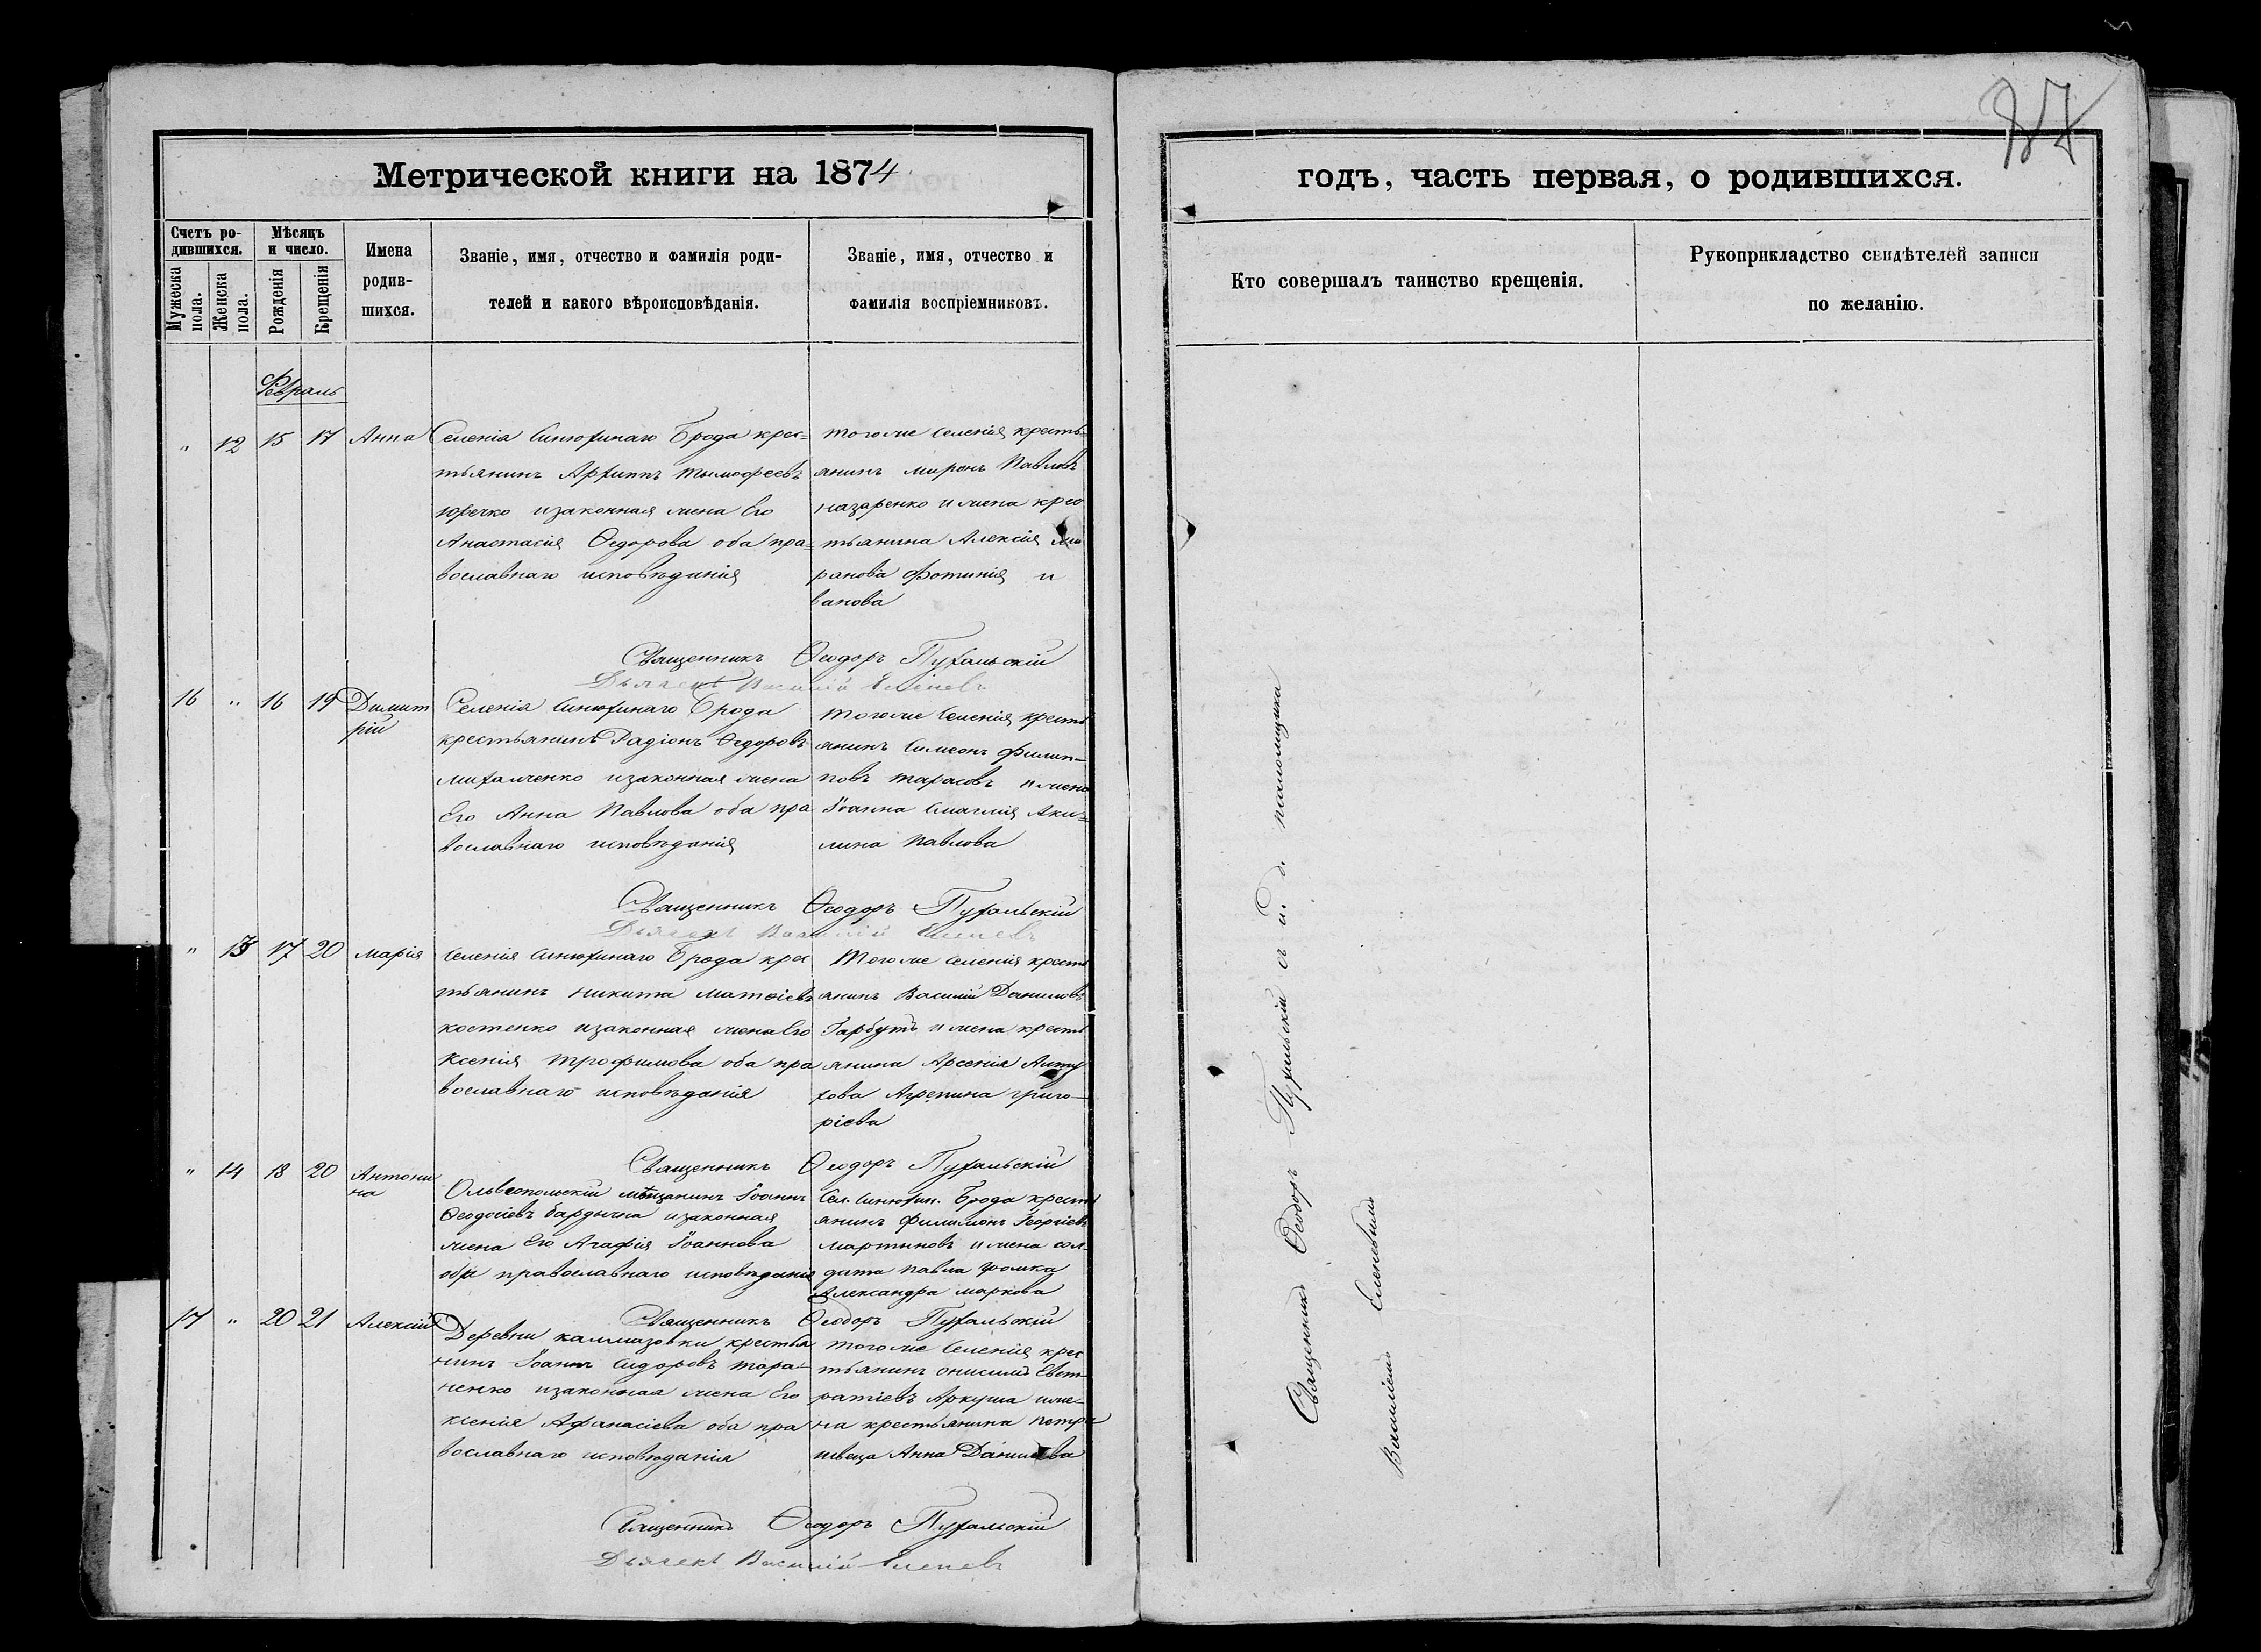 87
Метрической книги на 1874
годъ, часть первая, о родившихся.
Счетъ ро-
дившихся.
Мужеска
пола.
Женска
пола.
Мѣсяцъ
и число.
Рожденія
Крещенія
Имена
родив-
шихся.
Званіе, имя, отчество и фамилія роди-
телей и какого вѣроисповѣданія.
Званіе, имя, отчество и
фамилія воспріемниковъ.
Кто совершалъ таинство крещенія.
Рукоприкладство свидѣтелей записи
по желанію.
Февраль
" 12 15 17 Анна
Селенія Синюхинаго Брода крес=
тьянинъ Архиппъ Тимофеевъ
Юречко изаконная жена Его
Анастасія Ѳедорова оба пра=
вославнаго исповѣданія
тогоже селенія кресть=
янинъ Миронъ Павловъ
Назаренко и жена крес
тьянина Алексія
Фотинія и
ванова
Священникъ Ѳеодоръ Пухальскій
Дьячекъ Василій
16 " 16 19 Димит
рій
Селенія Синюхинаго Брода
крестьянинъ Радіонъ Ѳедоровъ
Михалченко изаконная жена
Его Анна Павлова оба пра
вославнаго исповѣданія
тогоже Селенія кресть
янинъ Симеонъ Филип-
повъ Тарасовъ и жена
Іоанна Смаглія Аки=
лина Павлова
Священникъ Ѳеодоръ Пухальскій
Дьячекъ Василій
" 13 17 20 Марія
Селенія Синюхинаго Брода крес
тьянинъ Никита Матѳіевъ
Костенко изаконная жена Его
Ксенія Трофимова оба пра
вославнаго исповѣданія
Тогоже Селенія кресть
янинъ Василій Даниловъ
Гарбузъ и жена кресть
янина Арсенія
Агрепина Григо-
ріева
Священникъ Ѳеодоръ Пухальскій
" 14 18 20 Антони
на
Ольвіопольскій мѣщанинъ Іоаннъ
Ѳеодосіевъ изаконная
жена Его Агафія Іоаннова
оба православнаго исповѣданія
Сел. Синюхин. Брода кресть
янинъ Филимонъ Георгіевъ
Мартиновъ и жена сол-
дата Павла Громка
Александра Маркова
Священникъ Ѳеодоръ Пухальскій
17 " 20 21 Алексій
Деревни Калмазовки крестья
нинъ Іоаннъ Сидоровъ Тара-
ненко изаконная жена Его
Ксенія Афанасіева оба пра
вославнаго исповѣданія
тогоже Селенія крес
тьянинъ Онисимъ Евст
ратіевъ Аркуша и же-
на крестьянина Петра
Швеца Анна Данилова
Священникъ Ѳеодоръ Пухальскій
Дьячекъ Василій
Священникъ Ѳеодоръ Пухальскій съ и. д. псаломщика
Василіемъ